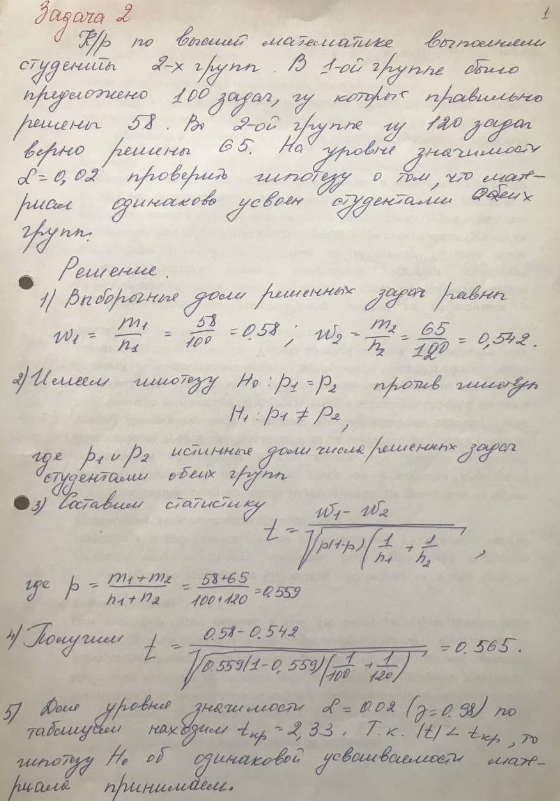 Задача 2
1
К/р по высшей математике выполняли
студенты 2-х групп. В 1-ой группе было
предложено 100 задач, из которых правильно
решены 58. Во 2-ой группе из 120 задач
верно решены 65. На уровне значимости
α=0,02 проверить гипотезу о том, что мате-
риал одинаково усвоен студентами обеих
групп.
Решение.
1) Выборочные доли решенных задач равны
w₁ = m₁/n₁ = 58/100 = 0.58; w₂ = m₂/n₂ = 65/120 = 0,542.
2) Имеем гипотезу H₀: p₁ = p₂ против гипотезы
H₁: p₁ ≠ p₂,
где p₁ и p₂ истинные доли числа решенных задач
студентами обеих групп
3) Составим статистику
t = (w₁ - w₂)/√(p(1-p)(1/n₁ + 1/n₂)),
где p = (m₁+m₂)/(n₁+n₂) = (58+65)/(100+120) = 0.559
4) Получим t = (0.58-0.542)/√(0.559(1-0,559)(1/100 + 1/120)) = 0.565.
5) Для уровня значимости α = 0.02 (γ=0.98) по
таблицам находим tкр = 2,33. Т.к. |t| < tкр, то
гипотезу H₀ об одинаковой усваиваемости мате-
риала принимаем.